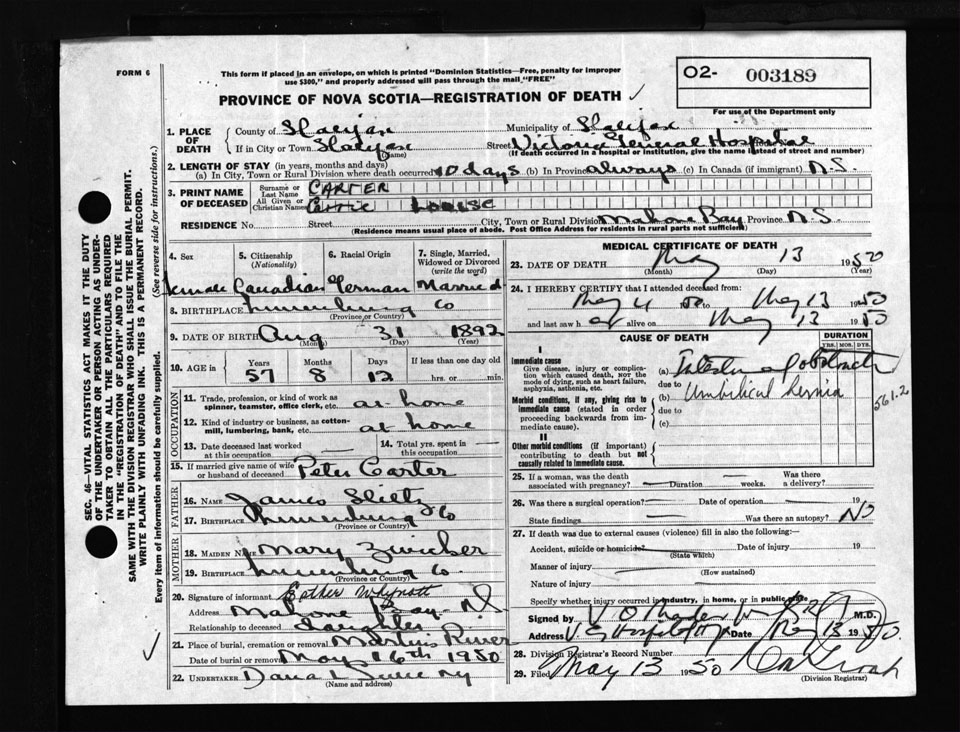 FORM 6
This form if placed in an envelope, on which is printed "Dominion Statistics—Free, penalty for improper
use $300," and properly addressed will pass through the mail "FREE"
O2- 003189
PROVINCE OF NOVA SCOTIA—REGISTRATION OF DEATH
For use of the Department only
1. PLACE OF DEATH
County of Halifax Municipality of Halifax
If in City or Town Halifax (Name) Street Victoria General Hospital
(If death occurred in a hospital or institution, give the name instead of street and number)
2. LENGTH OF STAY (in years, months and days)
(a) In City, Town or Rural Division where death occurred 10 days (b) In Province always (c) In Canada (if immigrant) N.S.
3. PRINT NAME OF DECEASED
Surname or Last Name CARTER
All Given or Christian Names Carrie LOUISE
RESIDENCE No. Street City, Town or Rural Division Mahone Bay Province N.S.
(Residence means usual place of abode. Post Office Address for residents in rural parts not sufficient)
4. Sex Female
5. Citizenship (Nationality) Canadian
6. Racial Origin German
7. Single, Married, Widowed or Divorced (write the word) Married
8. BIRTHPLACE Lunenburg Co
(Province or Country)
9. DATE OF BIRTH Aug 31 1892
(Month) (Day) (Year)
10. AGE in Years 57 Months 8 Days 12 If less than one day old
hrs. or min.
OCCUPATION
11. Trade, profession, or kind of work as
spinner, teamster, office clerk, etc. at home
12. Kind of industry or business, as cotton-
mill, lumbering, bank, etc. at home
13. Date deceased last worked
at this occupation
14. Total yrs. spent in
this occupation
15. If married give name of wife
or husband of deceased Peter Carter
FATHER
16. NAME James
17. BIRTHPLACE Lunenburg Co
(Province or Country)
MOTHER
18. MAIDEN NAME Mary Zwicker
19. BIRTHPLACE Lunenburg Co.
(Province or Country)
20. Signature of informant Esther Whynott
Address Mahone Bay
Relationship to deceased daughter
21. Place of burial, cremation or removal Martins River
Date of burial or removal May 16th 1950
22. UNDERTAKER Dana L
(Name and address)
MEDICAL CERTIFICATE OF DEATH
23. DATE OF DEATH May 13 1950
(Month) (Day) (Year)
24. I HEREBY CERTIFY that I attended deceased from:
May 4 to May 13 1950
and last saw her alive on May 13 1950
CAUSE OF DEATH
DURATION
YRS. MOS. DYS.
I
Immediate cause
Give disease, injury or complica-
tion which caused death, not the
mode of dying, such as heart failure,
asphyxia, asthenia, etc.
(a) Intestinal obstruction
due to
Morbid conditions, if any, giving rise to
immediate cause (stated in order
proceeding backwards from im-
mediate cause).
(b) Umbilical hernia
due to
(c)
561.2
II
Other morbid conditions (if important)
contributing to death but not
causally related to immediate cause.
25. If a woman, was the death
associated with pregnancy? Duration weeks. Was there
a delivery?
26. Was there a surgical operation? Date of operation 19
State findings Was there an autopsy? No
27. If death was due to external causes (violence) fill in also the following:
Accident, suicide or homicide? Date of injury 19
(State which)
Manner of injury
(How sustained)
Nature of injury
Specify whether injury occurred in industry, in home, or in public place
Signed by M.D.
Address V. G. Hospital Date May 13 1950.
28. Division Registrar's Record Number
29. Filed May 13 1950
(Division Registrar)
SEC. 46—VITAL STATISTICS ACT MAKES IT THE DUTY
OF THE UNDERTAKER OR PERSON ACTING AS UNDER-
TAKER TO OBTAIN ALL THE PARTICULARS REQUIRED
IN THE "REGISTRATION OF DEATH" AND TO FILE THE
SAME WITH THE DIVISION REGISTRAR WHO SHALL ISSUE THE BURIAL PERMIT.
WRITE PLAINLY WITH UNFADING INK. THIS IS A PERMANENT RECORD.
Every item of information should be carefully supplied. (See reverse side for instructions.)